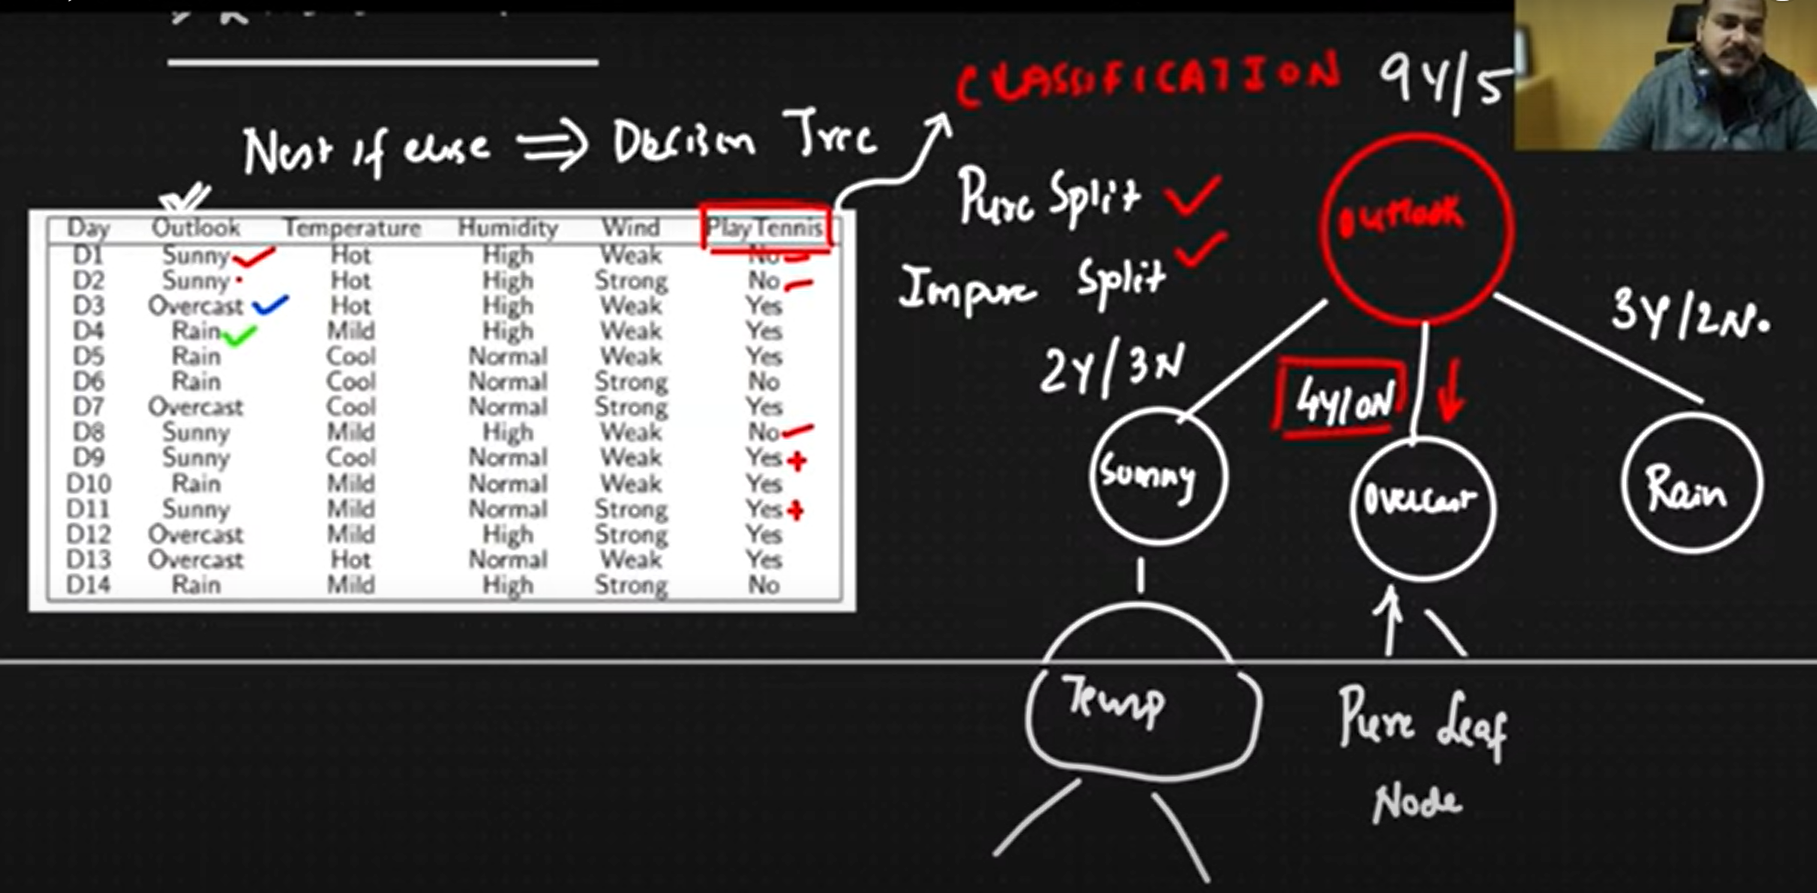 CLASSIFICATION 9Y/5
Nest if else ⇒ Decision Tree
Pure Split ✓
Impure Split ✓
Outlook
Day Outlook Temperature Humidity Wind PlayTennis
D1 Sunny Hot High Weak No
D2 Sunny Hot High Strong No
D3 Overcast Hot High Weak Yes
D4 Rain Mild High Weak Yes
D5 Rain Cool Normal Weak Yes
D6 Rain Cool Normal Strong No
D7 Overcast Cool Normal Strong Yes
D8 Sunny Mild High Weak No
D9 Sunny Cool Normal Weak Yes +
D10 Rain Mild Normal Weak Yes
D11 Sunny Mild Normal Strong Yes +
D12 Overcast Mild High Strong Yes
D13 Overcast Hot Normal Weak Yes
D14 Rain Mild High Strong No
2Y/3N
4Y/0N
3Y/2N.
Sunny
Overcast
Rain
Temp
Pure Leaf
Node